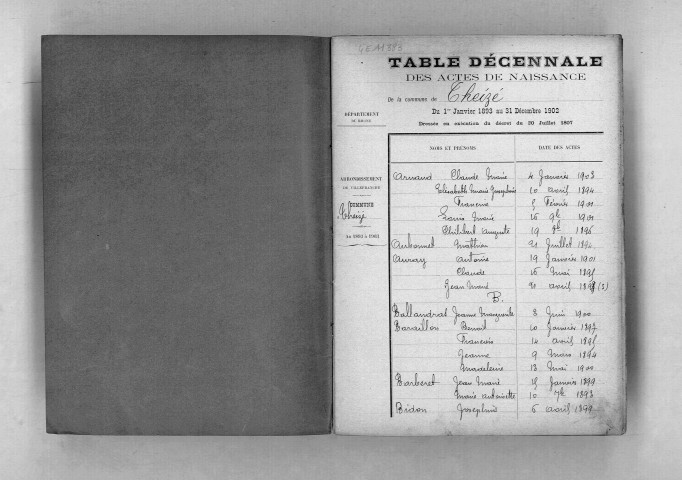 TABLE DÉCENNALE
DES ACTES DE NAISSANCE
De la commune de Theizé
Du 1er Janvier 1893 au 31 Décembre 1902
Dressée en exécution du décret du 20 Juillet 1807
DÉPARTEMENT
DU RHONE
ARRONDISSEMENT
DE VILLEFRANCHE
COMMUNE
Theizé
NOMS ET PRÉNOMS DATE DES ACTES
Arnaud Claude Marie 4 Janvier 1903
Elisabeth Marie Joséphine 10 avril 1894
Francine 5 Février 1901
Louis Marie 16 9bre 1901
Philibert Auguste 19 1896
Aubonnet Matthieu 21 Juillet 1894
Auray Antoine 19 Janvier 1901
Claude 16 Mai 1895
Jean Marie 20 avril 189
B.
Ballandras Jeanne Marguerite 3 Juin 1900
Baraillon Benoit 10 Janvier 1897
Francois 14 avril 1895
Jeanne 9 Mars 1894
Madeleine 13 Mai 1900
Barberet Jean Marie 15 Janvier 1899
Marie Antoinette 10 7bre 1893
Bidon Joséphine 6 avril 1899